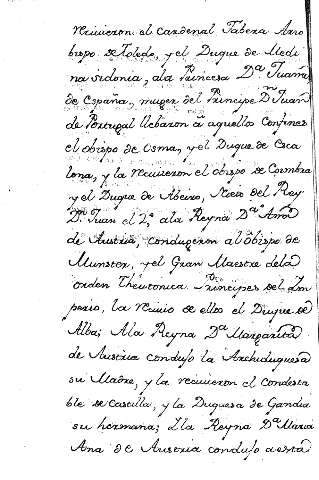 recivieron el Cardenal Tabera Arzo
bispo de Toledo, y el Duque de Medi
na sidonia, ala Princesa Dª Juana
de España, muger del Principe Dn Juan
de Portugal llebaron â aquellos Confines
el obispo de Osma, y el Duque de Esca
lona, y la recivieron el obispo de Coimbra
y el Duque de Abeiro, Nieto del Rey
Dn Juan el 2º ala Reyna Dª Ana
de Austria, condugeron al Obispo de
Munster, y el Gran Maestre dela
orden Theutonica Principes del Im
perio, la recivio de ellos el Duque de
Alba; Ala Reyna Dª Margarita
de Austria condujo la Archiduquesa
su Madre, y la recivieron el Condesta
ble de Castilla, y la Duquesa de Gandia
su hermana; Ala Reyna Dª Maria
Ana de Austria condujo a esta